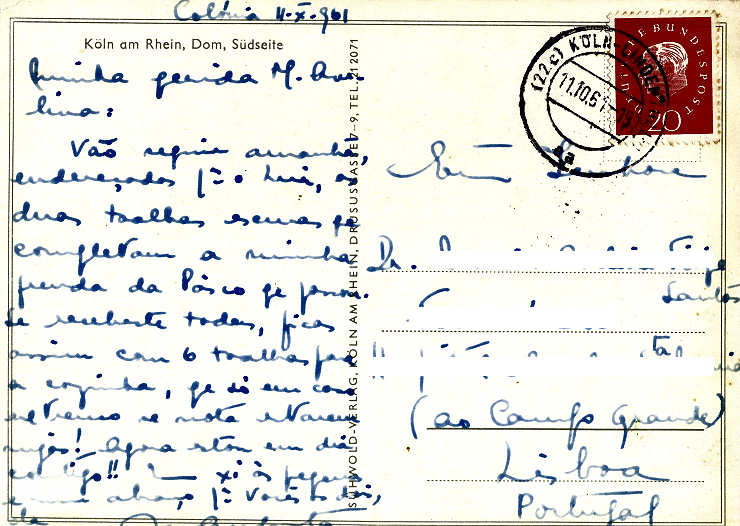 Colónia 11-X-961
Köln am Rhein, Dom, Südseite
Minha querida M. Ave-
lina:
Vão seguir amanhã,
endereçados pª o Luis, as
duas toalhas escuras qe
completam a minha
prenda da Páscoa qe passou.
Se recebeste todas, ficas
assim com 6 toalhas para
a cozinha, qe só em caso
extremo se nota estarem
sujas! Agora estou em dia
contigo!! xi às
e um abraço pª Vocês dois,
da
SCHWOLD-VERLAG, KÖLN AM RHEIN, DRUSUSGASSE 7-9, TEL. 212071
(22c) KÖLN-
11.10.61
a
DEUTSCHE BUNDESPOST
20
Senhora
Dr.
Santos
(ao Campo Grande)
Lisboa
Portugal